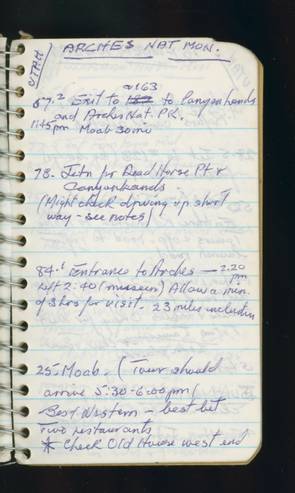 UTAH
ARCHES NAT MON.
≈163
67.2 Exit to to Canyonlands
and Arches Nat. PK.
1:45pm Moab 30 mi
78. Jctn for Dead Horse Pt &
Canyonlands.
(Might check driving up short
way - see notes)
84.6 Entrance to Arches — 2:20
pm
Left 2:40 (museum) Allow a min.
of 3 hrs for visit. 23 miles including
25. Moab. (Tour should
arrive 5:30-6:00pm)
Best Western - best bet
Two restaurants
* Check Old House west end